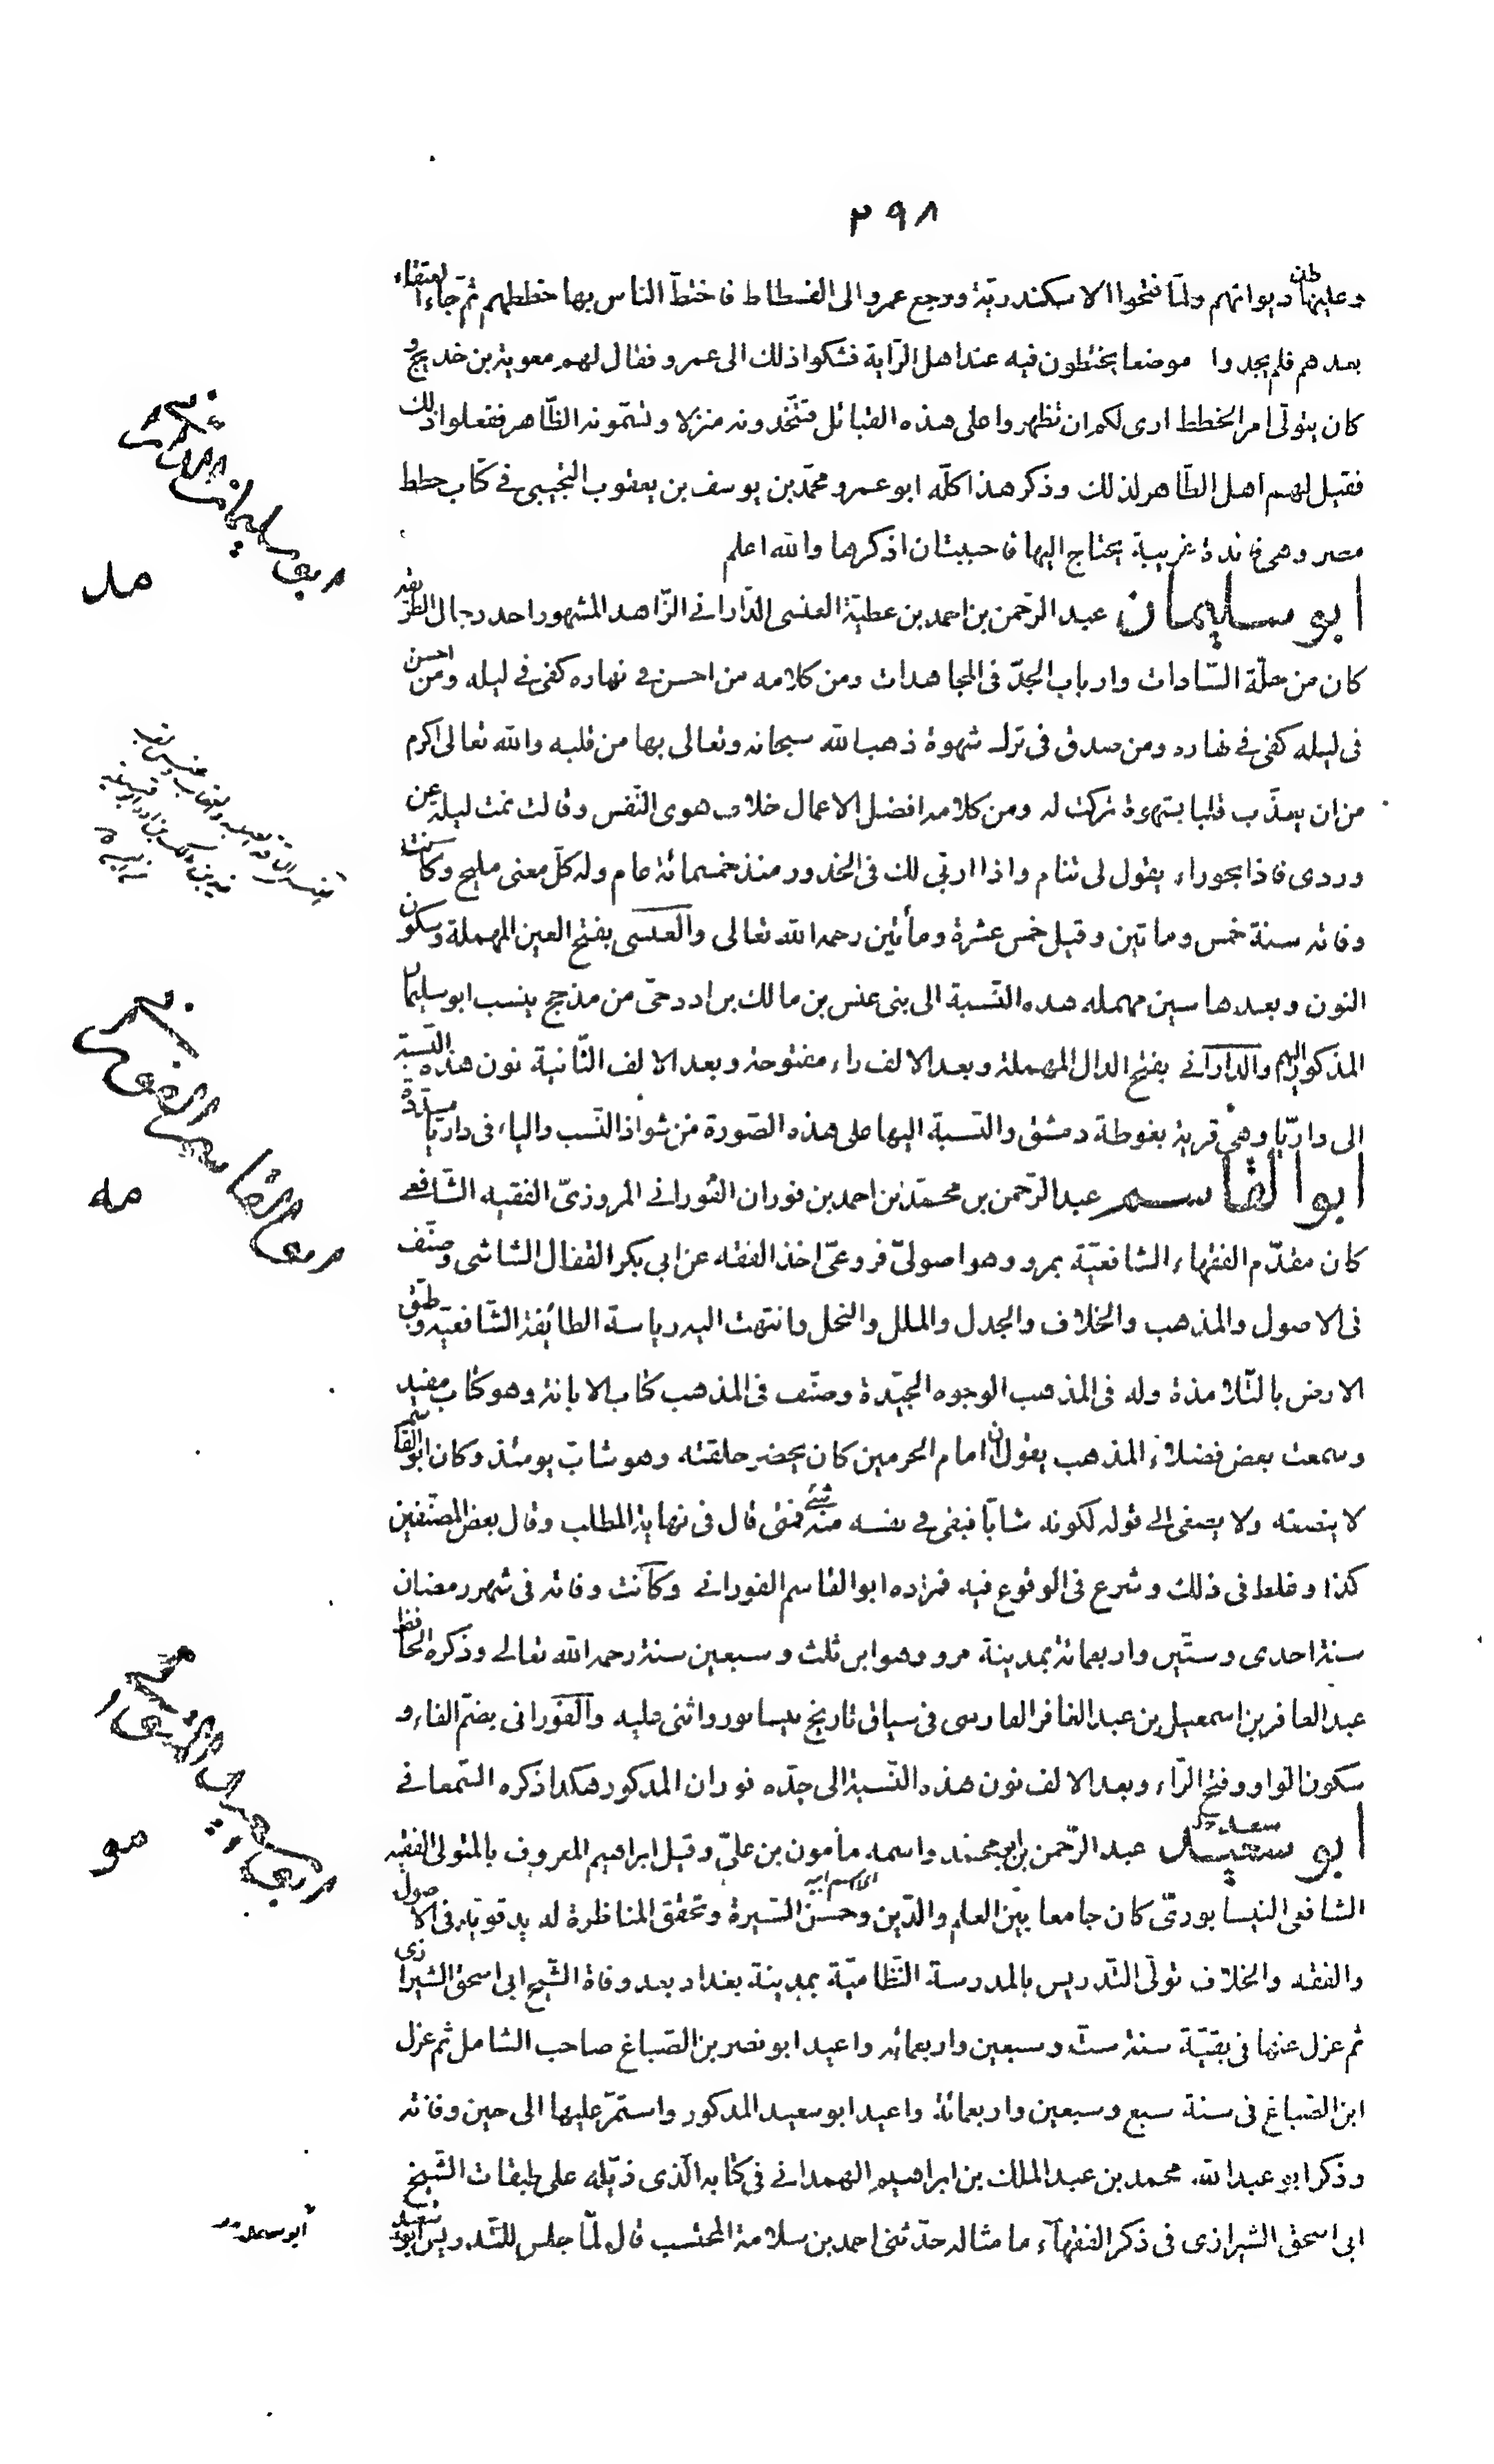 ٢٩٨
وعليها ديوانهم ولمّا فتحوا الاسكندريّة ورجع عمرو الى الفسطاط فاختطّ الناس بها خططهم ثمّ جاء العتقاء
بعدهم فلم يجدوا موضعا يختطون فيه عند اهل الرّاية فشكوا ذلك الى عمرو فقال لهم معوية بن خديج و
كان يتولّى امر الخطط ارى لكم ان تظهروا على هذه القبائل فتتّخذونه منزلا وتسّمونه الظّاهر ففعلوا ذلك
فقيل لهم اهل الظّاهر لذلك وذكر هذا كلّه ابو عمرو محمّد بن يوسف بن يعقوب التجيبى فى كتاب خطط
مصر وهى فائدة غريبة يحتاج اليها فاحببت ان اذكرها والله اعلم
ابو سليمان عبد الرّحمن بن احمد بن عطيّة العنسى الدّارانى الزّاهد المشهور احد رجال الطّريقة
كان من جلّة السّادات وارباب الجدّ فى المجاهدات ومن كلامه من احسن فى نهاره كفى فى ليله ومن احسن
فى ليله كفى فى نهاره ومن صدق فى ترك شهوة ذهب الله سبحانه وتعالى بها من قلبه والله تعالى اكرم
من ان يعذّب قلبا بشهوة تركت له ومن كلامه افضل الاعمال خلاف هوى النّفس وقالت نمت ليلة عن
وردى فاذا بحوراء يقول لى تنام واذا اربّى لك فى الخدور منذ خمسمائة عام وله كلّ معنى مليح وكانت
وفاته سنة خمس وماتين وقيل خمس عشرة ومأتين رحمه الله تعالى والعنسى بفتح العين المهملة وسكون
النون وبعدها سين مهمله هذه النّسبة الى بنى عنس بن مالك بن ادد حىّ من مذحج ينسب ابو سليمان
المذكور اليهم والدارانى بفتح الدال المهملة وبعد الالف راء مفتوحة وبعد الالف الثّانية نون هذه النّسبة
الى داريّا وهى قرية بغوطة دمشق والنسبة اليها على هذه الصّورة من شواذ النّسب والياء فى داريّا مشدّدة
ابو القاسم عبد الرّحمن بن محمّد بن احمد بن فوران الفورانى المروزىّ الفقيه الشّافعى
كان مقدّم الفقهاء الشافعيّة بمرو وهو اصولىّ فروعىّ اخذ الفقه عن ابى بكر القفال الشاشى وصنّف
فى الاصول والمذهب والخلاف والجدل والملل والنحل وانتهت اليه رياسة الطائفة الشّافعيّة وطبّق
الارض بالتّلامذة وله فى المذهب الوجوه الجيّدة وصنّف فى المذهب كتاب الابانة وهو كتاب مفيد
وسمعت بعض فضلاء المذهب يقول ان امام الحرمين كان يحضر حلقته وهو شابّ يومئذ وكان ابو القاسم
لا ينصته ولا يصغى الى قوله لكونه شابّا فبقى فى نفسه منه شئ فمتى قال فى نهاية المطلب وقال بعض المصنّفين
كذا وغلط فى ذلك وشرع فى الوقوع فيه فمراده ابو القاسم الفورانى وكانت وفاته فى شهر رمضان
سنة احدى وستّين واربعمائة بمدينة مرو وهو ابن ثلث وسبعين سنة رحمه الله تعالى وذكره الحافظ
عبد الغافر بن اسمعيل بن عبد الغافر الفارسى فى سياق تاريخ نيسابور واثنى عليه والفورانى بضمّ الفاء و
سكون الواو وفتح الرّاء وبعد الالف نون هذه النّسبة الى جدّه فوران المذكور هكذا ذكره السّمعانى
ابو سعيد عبد الرّحمن بن ابى محمد واسمه مأمون بن علىّ وقيل ابراهيم المعروف بالمتولى الفقيه
الشافعى النيسابورىّ كان جامعا بين العلم والدّين وحسن السّيرة وتحقق المناظرة له يد قويّة فى الاصول
والفقه والخلاف تولّى التّدريس بالمدرسة النّظاميّة بمدينة بغداد بعد وفاة الشّيخ ابى اسحق الشيرازى
ثم عزل عنها فى بقيّة سنة ستّ وسبعين واربعمائه واعيد ابو نصر بن الصّباغ صاحب الشامل ثم عزل
ابن الصّباغ فى سنة سبع وسبعين واربعمائة واعيد ابو سعيد المذكور واستمرّ عليها الى حين وفاته
وذكر ابو عبد الله محمد بن عبد الملك بن ابراهيم الهمدانى فى كتابه الّذى ذيّله على طبقات الشّيخ
ابى اسحق الشيرازى فى ذكر الفقهاء ما مثاله حدّثنى احمد بن سلامة المحتسب قال لمّا جلس للتّدريس ابو سعيد
ابو سليمان الدارانى
مد
ابو القاسم الفورانى
مه
مو